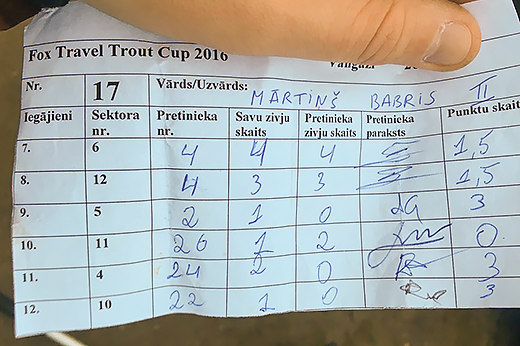 Fox Travel Trout Cup 2016
Nr. 17 Vārds/Uzvārds: MĀRTIŅŠ BABRIS II
Iegājieni Sektora nr. Pretinieka nr. Savu zivju skaits Pretinieka zivju skaits Pretinieka paraksts Punktu skaits
7. 6 4 4 4 1,5
8. 12 4 3 3 1,5
9. 5 2 1 0 3
10. 11 26 1 2 0
11. 4 24 2 0 3
12. 10 22 1 0 3